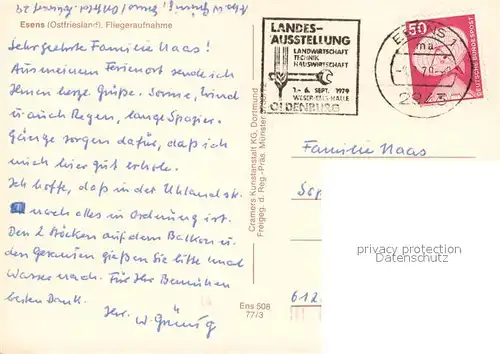 Esens (Ostfriesland), Fliegeraufnahme
Sehr geehrte Familie Naas!
Aus meinem Ferienort sende ich
Ihnen herzl. Grüße. Sonne, Wind
u. auch Regen, lange Spazier-
Gänge sorgen dafür, daß ich
mich hier gut erhole.
Ich hoffe, daß in der Uhlandstr.
noch alles in Ordnung ist.
Den 2 Böcken auf dem Balkon u.
den Geranien gießen Sie bitte mal
Wasser nach. Für Ihr Bemühen
besten Dank.
Ihr
W.
Ens 508
77/3
Cramers Kunstanstalt KG, Dortmund
Freigeg. d. Reg.-Präs. Münster
LANDES-
AUSSTELLUNG
LANDWIRTSCHAFT
TECHNIK
HAUSWIRTSCHAFT
1.- 6. SEPT. 1979
WESER-EMS-HALLE
OLDENBURG
ESENS 1
ma
79
2943
50
DEUTSCHE BUNDESPOST
Familie Naas
612
privately owned
copyright protected